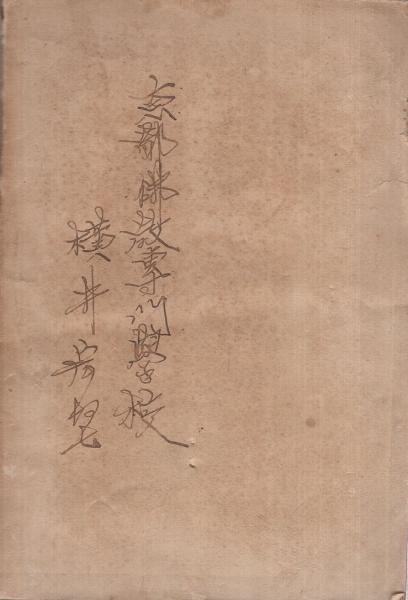 京都佛教專門學校
横井